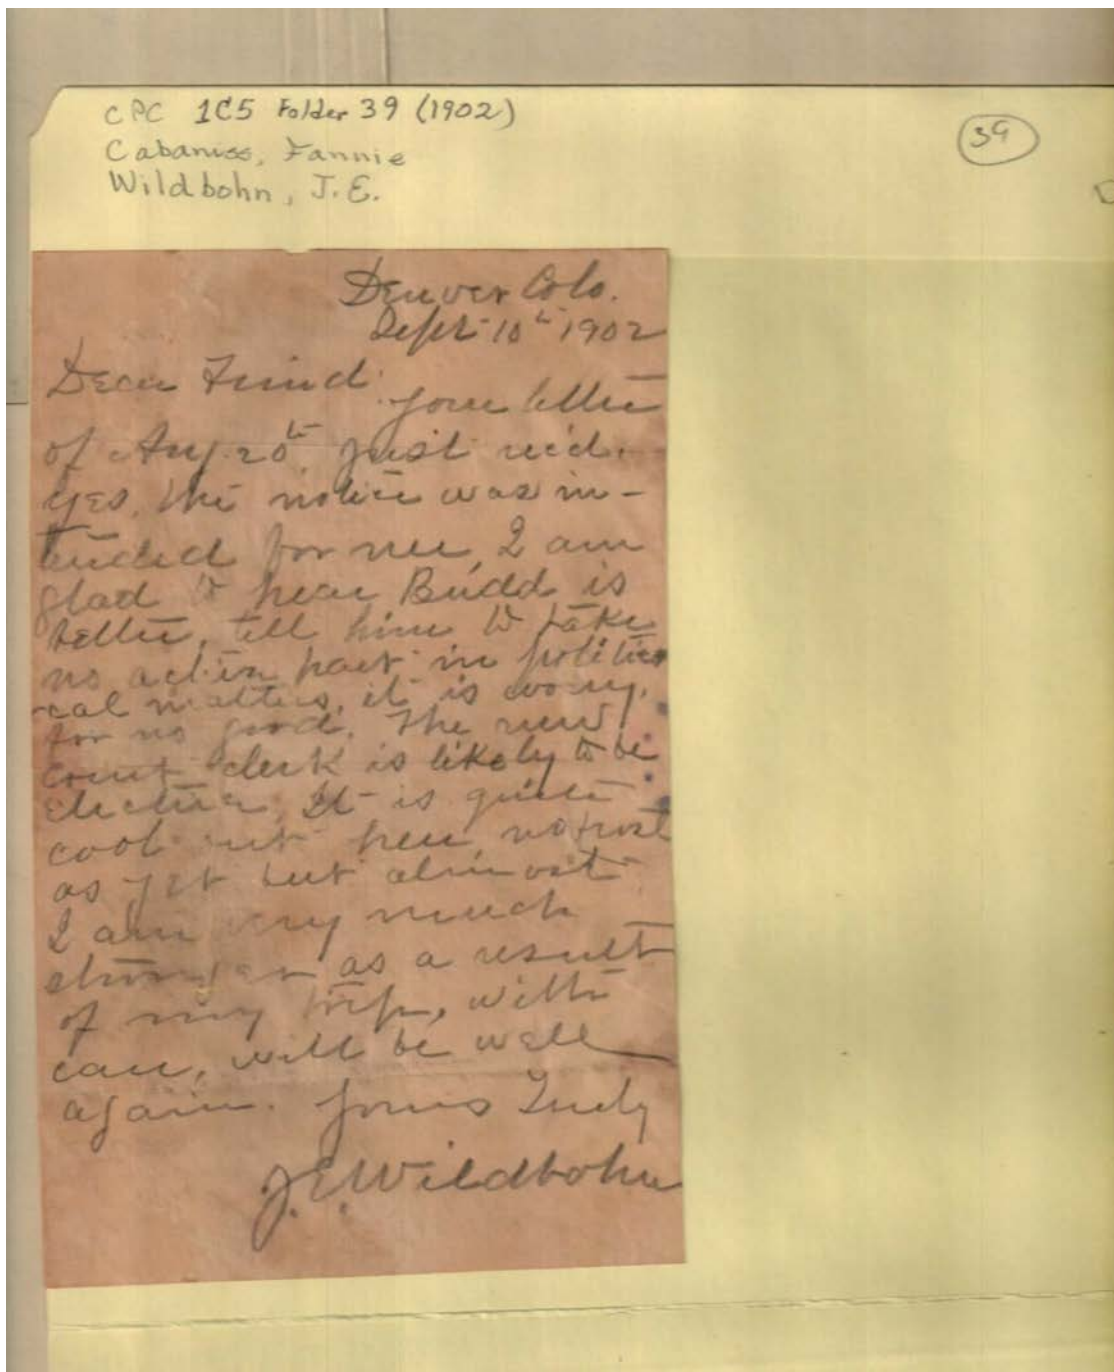 CPC 1C5 Folder 39 (1902)
Cabaniss, Fannie
Wildbohn, J.E.
39
Denver Colo.
Sept 10th 1902
Dear Friend: Your letter
of Aug. 20th just rec'd.
Yes, the notice was in-
tended for me, I am
glad to hear Budd is
better, tell him to take
no active part in politi-
cal matters, it is worry,
for no good. The new
court clerk is likely to be
elective, It is quite
cool out here, no frost
as yet but almost
I am very much
stronger as a result
of my trip, with
care, will be well
again. Yours Truly
J.E. Wildbohn